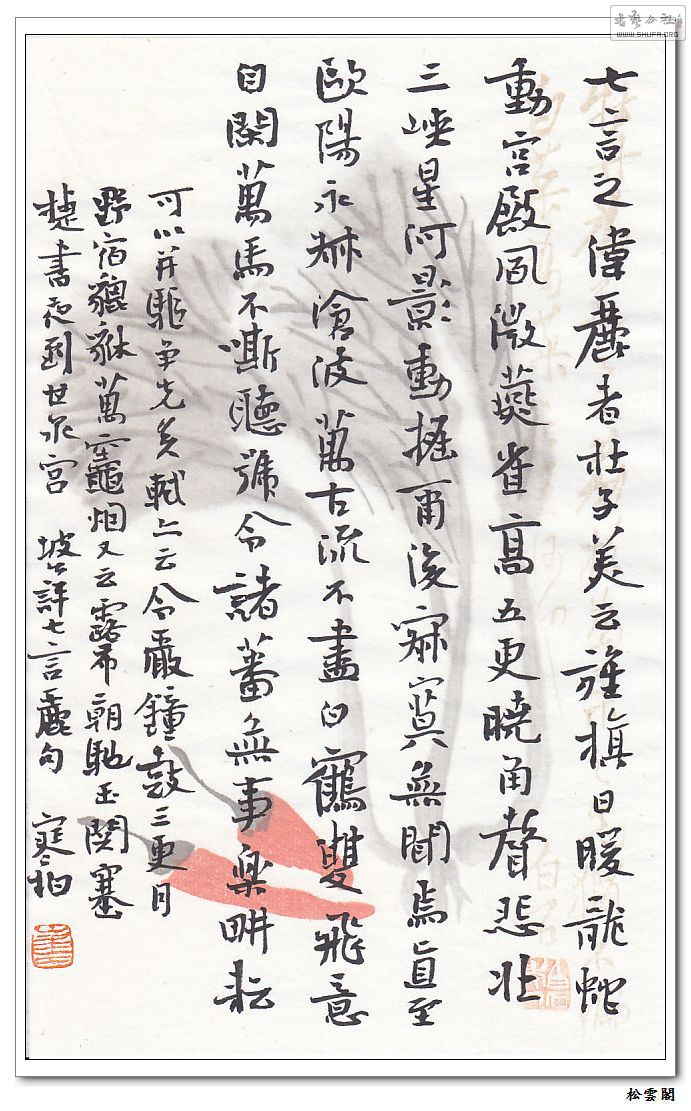 七言之偉麗者杜子美云旌旗日暖龍蛇
動宮殿風微燕雀高五更曉角聲悲壯
三峽星河影動搖爾後寂寞無聞焉直至
歐陽永叔滄波萬古流不盡白鶴雙飛意
自閑萬馬不嘶聽號令諸蕃無事樂耕耘
可以并驅爭先矣軾亦云令嚴鐘鼓三更月
野宿貔貅萬竈烟又云露布朝馳玉關塞
捷書夜到甘泉宮 坡公評七言麗句 寒柏
書藝公社
WWW.SHUFA.ORG
松雲閣